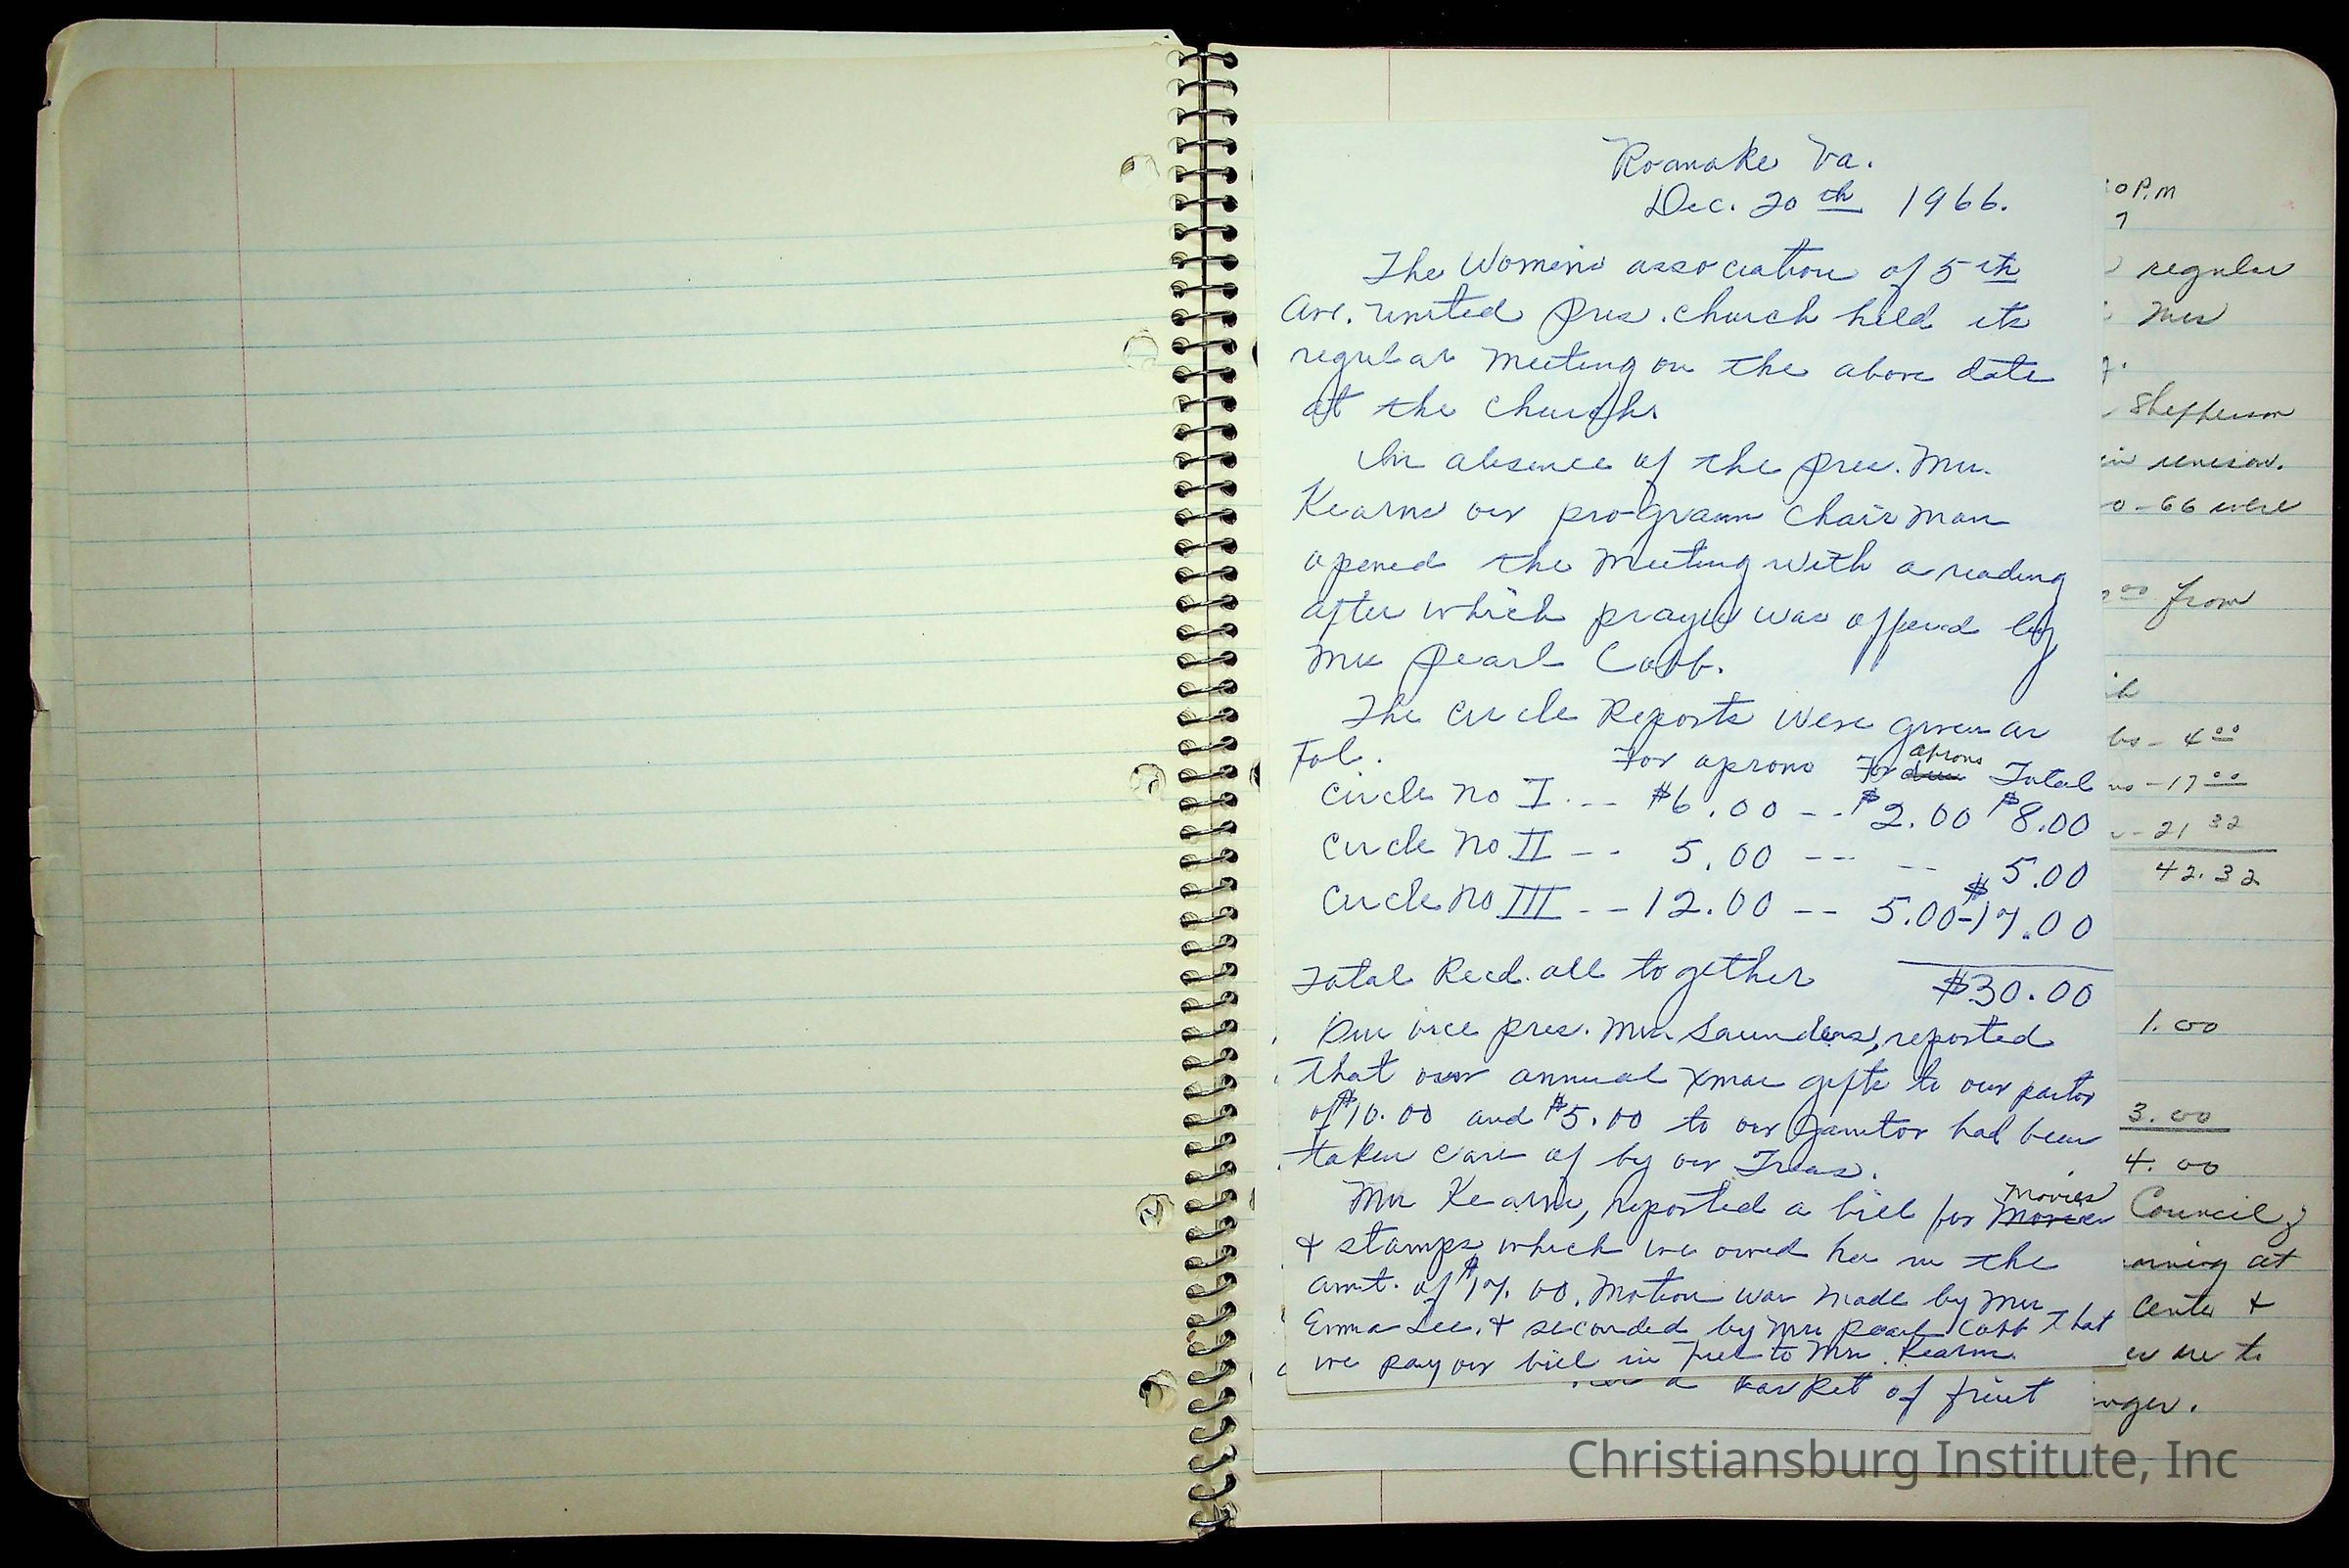 Roanoke Va.
Dec. 20th 1966.
The Womens association of 5th
Ave. United Pres. church held its
regular meeting on the above date
at the church.
In absence of the pres. Mrs.
Kearns our program chairman
opened the meeting with a reading
after which prayer was offered by
Mrs Pearl Cobb.
The circle Reports were given as
Fol. For aprons For due aprons Total
Circle no I --- $6.00 --- $2.00 $8.00
Circle no II --- 5.00 --- -- 5.00
Circle no III -- 12.00 -- 5.00 - $17.00
Total Recd. all together $30.00
Our vice pres. Mrs. Saunders, reported
that our annual Xmas gifts to our pastor
of $10.00 and $5.00 to our Janitor had been
taken care of by our Treas.
Mrs Kearns, reported a bill for movies
& stamps which we owed her in the
amt. of $17.00. Motion was made by Mrs
Emma Lee, & seconded by Mrs Pearl Cobb that
we pay our bill in full to Mrs. Kearns.
a basket of fruit
0 P.M
7
regular
Mrs
Shepperson
0-66 were
00 from
4 00
17 00
21 32
42.32
1.00
3.00
4.00
Council
at
Center &
to
Christiansburg Institute, Inc